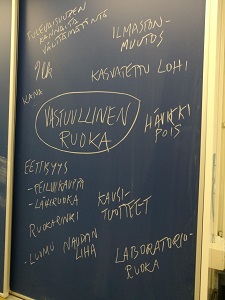 TULEVAISUUDEN
KANNALTA
VÄLTTÄMÄTÖNTÄ
ILMASTON-
MUUTOS
KASVATETTU LOHI
KANA
VASTUULLINEN
RUOKA
HÄVIKKI
POIS
EETTISYYS
- REILU KAUPPA
- LÄHIRUOKA
RUOKARINKI
- LUOMU NAUDAN
LIHA
KAUSI-
TUOTTEET
LABORATORIO-
RUOKA